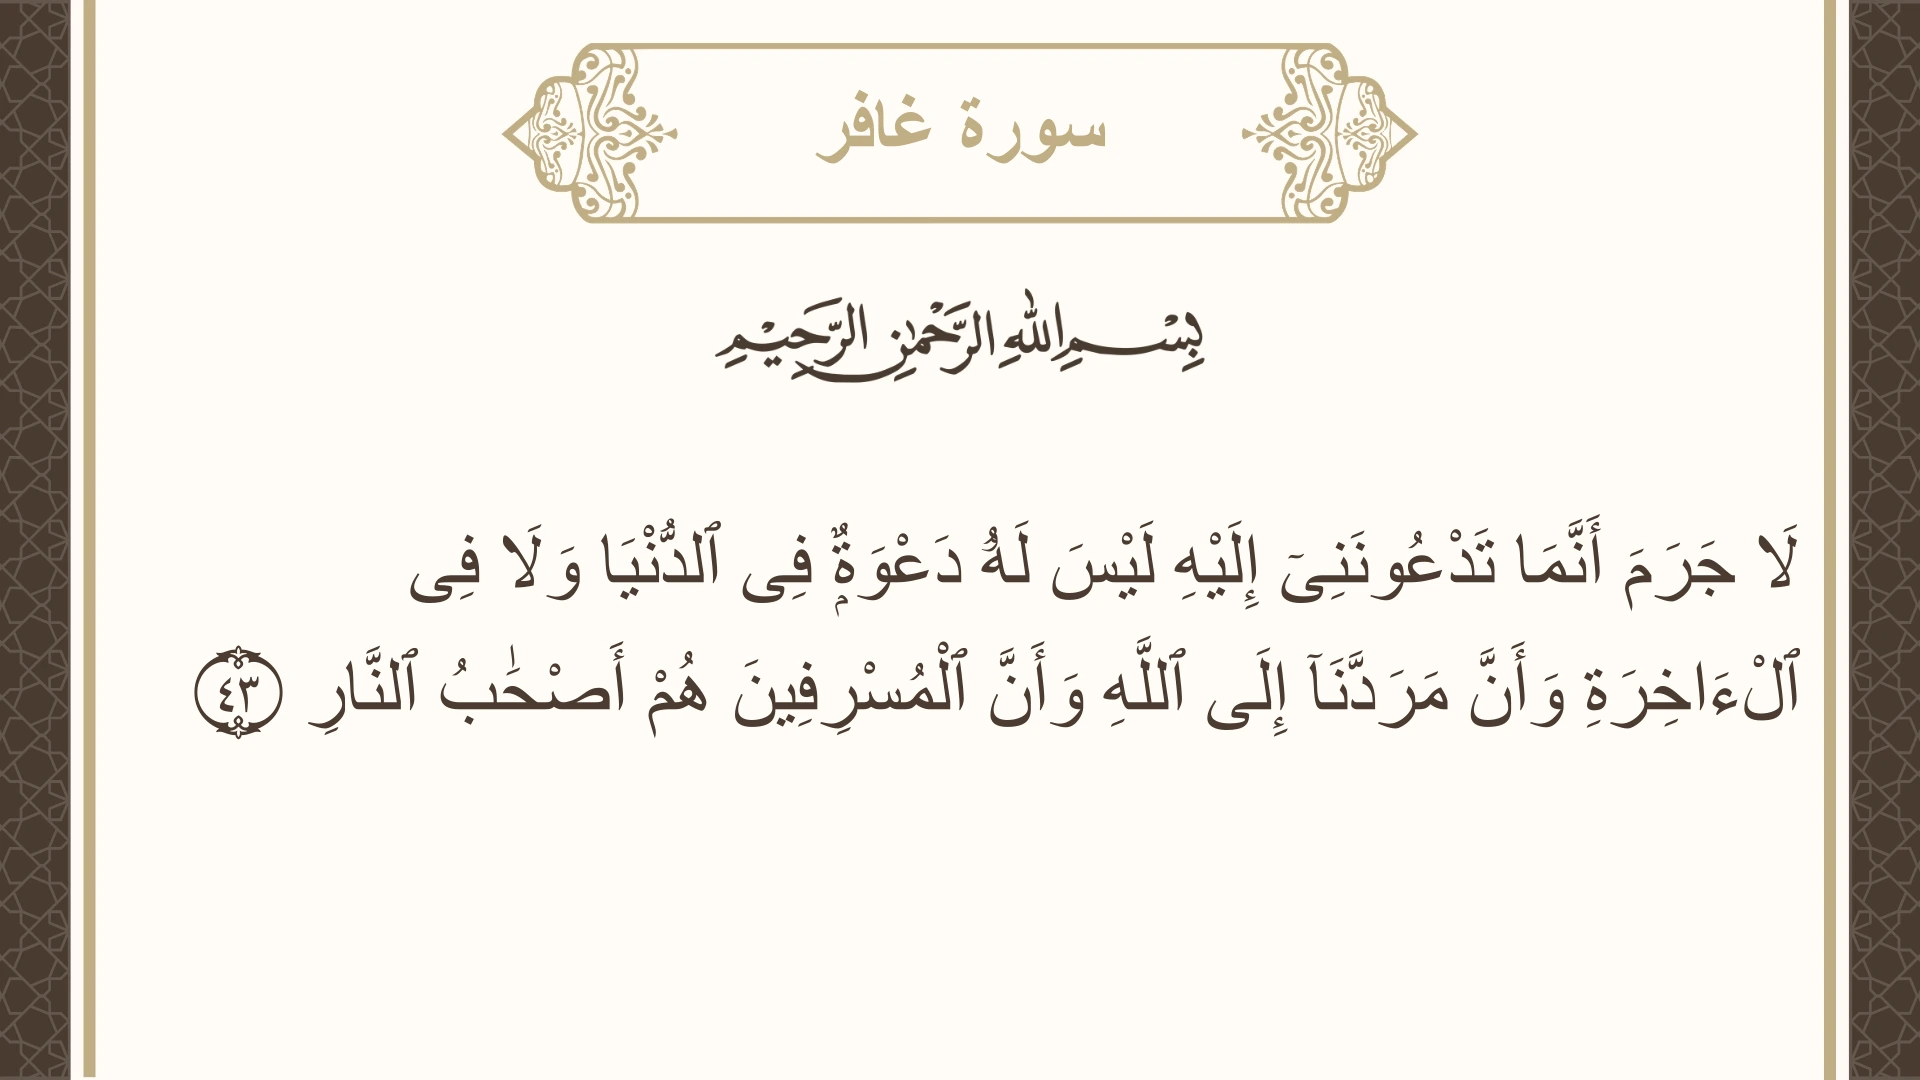 سورة غافر
بِسْمِ اللهِ الرَّحْمٰنِ الرَّحِيْمِ
لَا جَرَمَ أَنَّمَا تَدْعُونَنِىٓ إِلَيْهِ لَيْسَ لَهُۥ دَعْوَةٌۭ فِى ٱلدُّنْيَا وَلَا فِى
ٱلْءَاخِرَةِ وَأَنَّ مَرَدَّنَآ إِلَى ٱللَّهِ وَأَنَّ ٱلْمُسْرِفِينَ هُمْ أَصْحَـٰبُ ٱلنَّارِ ٤٣